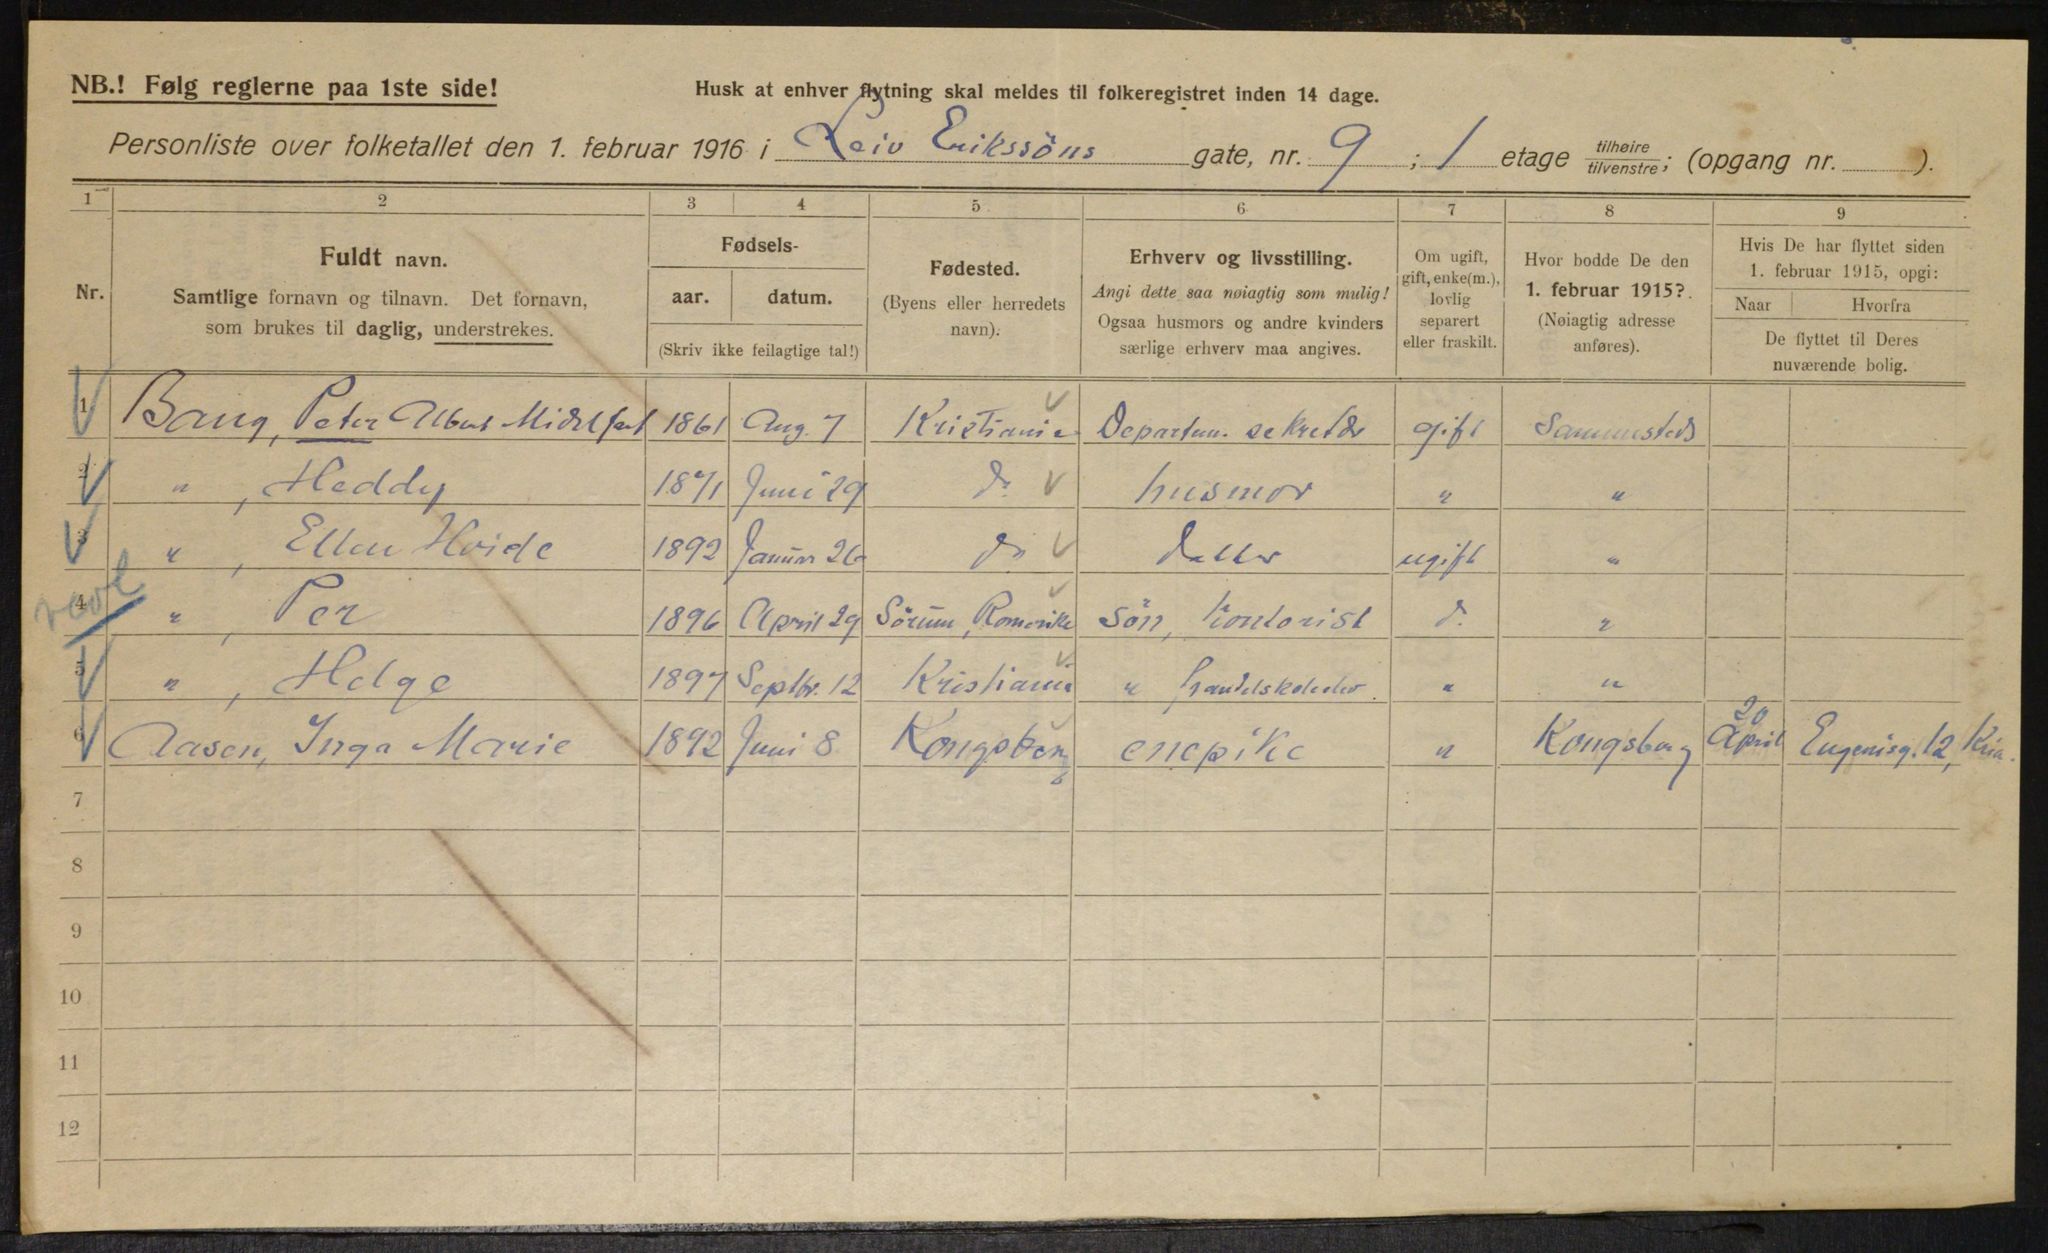 NB.! Følg reglerne paa 1ste side!
Husk at enhver flytning skal meldes til folkeregistret inden 14 dage.
Personliste over folketallet den 1. februar 1916 i Leiv Erikssöns gate, nr. 9 ; 1 etage tilhøire/tilvenstre; (opgang nr. ).
1 2 3 4 5 6 7 8 9
Nr.
Fuldt navn.
Samtlige fornavn og tilnavn. Det fornavn,
som brukes til daglig, understrekes.
Fødsels-
aar. datum.
(Skriv ikke feilagtige tal!)
Fødested.
(Byens eller herredets
navn).
Erhverv og livsstilling.
Angi dette saa nøiagtig som mulig!
Ogsaa husmors og andre kvinders
særlige erhverv maa angives.
Om ugift,
gift, enke(m.),
lovlig
separert
eller fraskilt.
Hvor bodde De den
1. februar 1915?
(Nøiagtig adresse
anføres).
Hvis De har flyttet siden
1. februar 1915, opgi:
Naar Hvorfra
De flyttet til Deres
nuværende bolig.
1 Bang, Peter Albert Middelfart 1861 Aug. 7 Kristiania Departm. sekretær gift Sammesteds
2 " , Heddy 1871 Juni 29 do husmor " "
3 " , Ellen Hvide 1892 Januar 26 do datter ugift "
4 " , Per 1896 April 29 Sörum, Romerike sön, kontorist do "
5 " , Helge 1897 Septbr. 12 Kristiania " handelskoleelev. " "
6 Aasen, Inga Marie 1892 Juni 8 Kongsberg enepike " Kongsberg 20 April Eugenisg. 12, Kria.
7
8
9
10
11
12